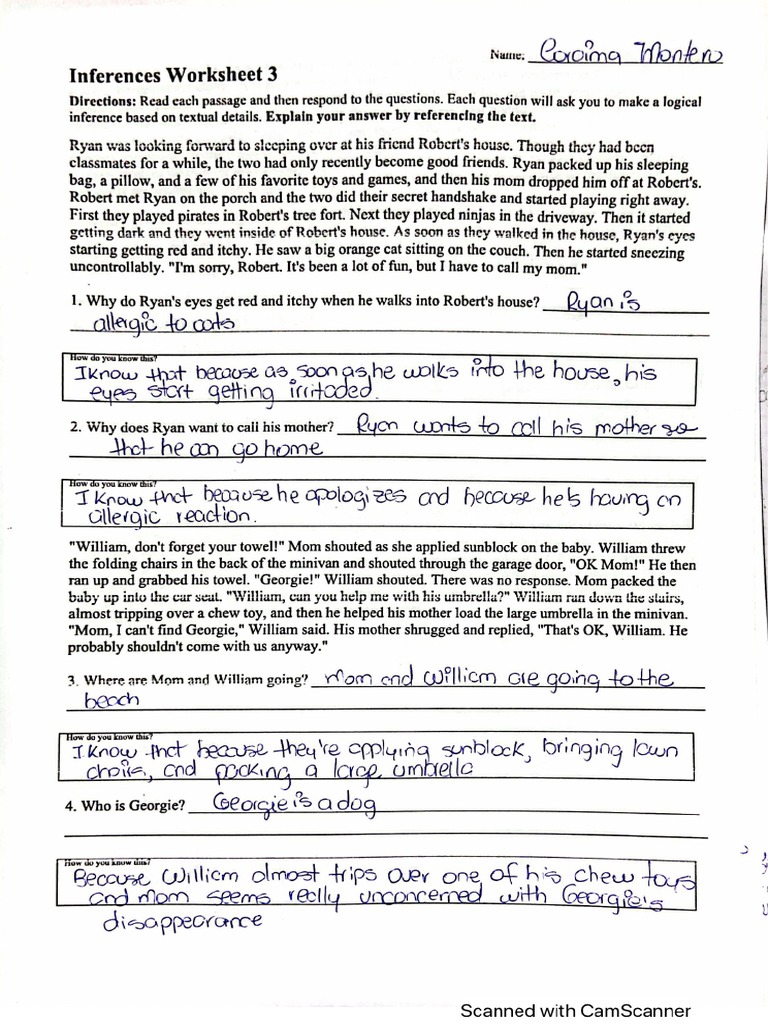 Name: Montero
Inferences Worksheet 3
Directions: Read each passage and then respond to the questions. Each question will ask you to make a logical
inference based on textual details. Explain your answer by referencing the text.
Ryan was looking forward to sleeping over at his friend Robert's house. Though they had been
classmates for a while, the two had only recently become good friends. Ryan packed up his sleeping
bag, a pillow, and a few of his favorite toys and games, and then his mom dropped him off at Robert's.
Robert met Ryan on the porch and the two did their secret handshake and started playing right away.
First they played pirates in Robert's tree fort. Next they played ninjas in the driveway. Then it started
getting dark and they went inside of Robert's house. As soon as they walked in the house, Ryan's eyes
starting getting red and itchy. He saw a big orange cat sitting on the couch. Then he started sneezing
uncontrollably. "I'm sorry, Robert. It's been a lot of fun, but I have to call my mom."
1. Why do Ryan's eyes get red and itchy when he walks into Robert's house? Ryan is
allergic to cats
How do you know this?
I know that because as soon as he walks into the house, his
eyes start getting irritaded.
2. Why does Ryan want to call his mother? Ryan wants to call his mother so
that he can go home
How do you know this?
I know that because he apologizes and because he's having an
allergic reaction.
"William, don't forget your towel!" Mom shouted as she applied sunblock on the baby. William threw
the folding chairs in the back of the minivan and shouted through the garage door, "OK Mom!" He then
ran up and grabbed his towel. "Georgie!" William shouted. There was no response. Mom packed the
baby up into the car seat. "William, can you help me with his umbrella?" William ran down the stairs,
almost tripping over a chew toy, and then he helped his mother load the large umbrella in the minivan.
"Mom, I can't find Georgie," William said. His mother shrugged and replied, "That's OK, William. He
probably shouldn't come with us anyway."
3. Where are Mom and William going? Mom and William are going to the
beach
How do you know this?
I know that because they're applying sunblock, bringing lawn
chairs, and packing a large umbrella
4. Who is Georgie? Georgie is a dog
How do you know this?
Because William almost trips over one of his chew toys
and mom seems really unconcerned with Georgie's
disappearance
Scanned with CamScanner